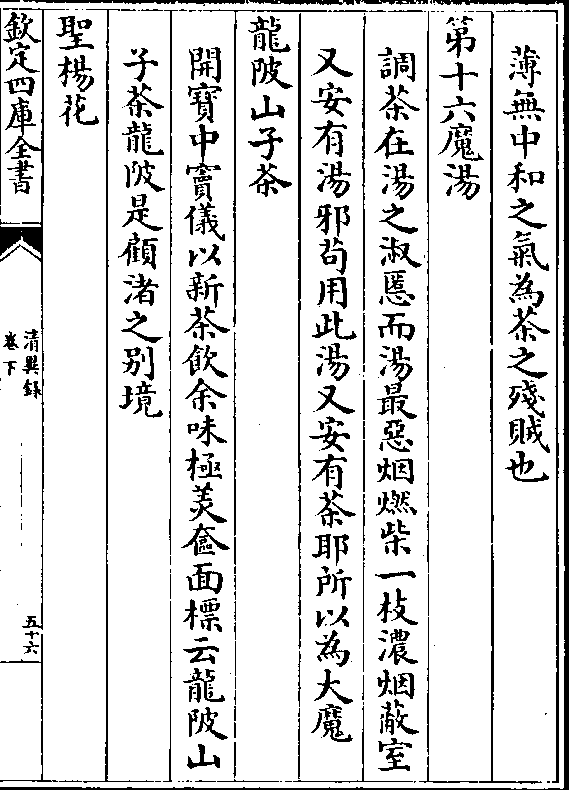 薄無中和之氣為茶之殘賊也
第十六魔湯
調茶在湯之淑慝而湯最惡烟燃柴一枝濃烟蔽室
又安有湯邪苟用此湯又安有茶耶所以為大魔
龍陂山子茶
開寳中竇儀以新茶飲余味極美奩面標云龍陂山
子茶龍陂是顧渚之别境
聖楊花
欽定四庫全書
清異録
卷下
五十六